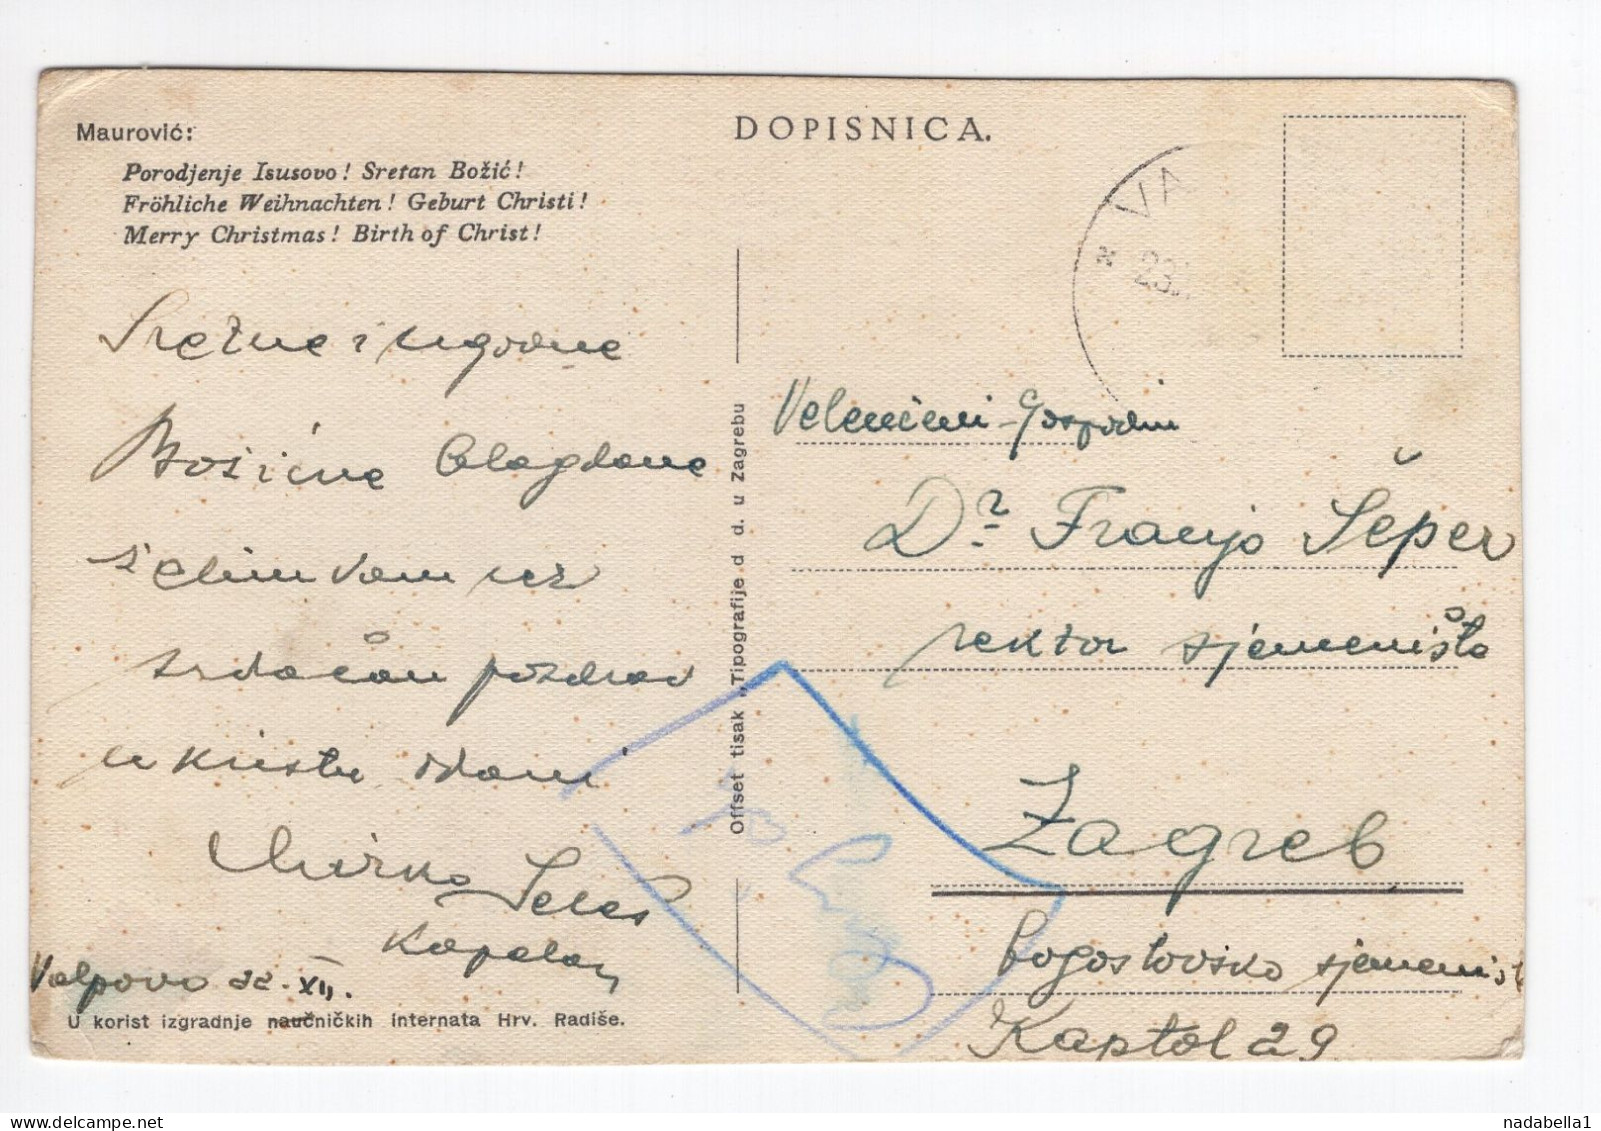 Maurović:
DOPISNICA.
Porodjenje Isusovo! Sretan Božić!
Fröhliche Weihnachten! Geburt Christi!
Merry Christmas! Birth of Christ!
VA
* 23.
Sretne i ugodne
Božićne blagdane
želim vam uz
srdačan pozdrav
u Kristu odani
Mirko
Kapelan
Valpovo 22.XII.
U korist izgradnje naučničkih internata Hrv. Radiše.
Offset tisak „Tipografije d d. u Zagrebu
Velečasni Gospodin
Dr. Franjo Šeper
rektor sjemeništa
Zagreb
bogoslovsko sjemeništ
Kaptol 29
nadabella1